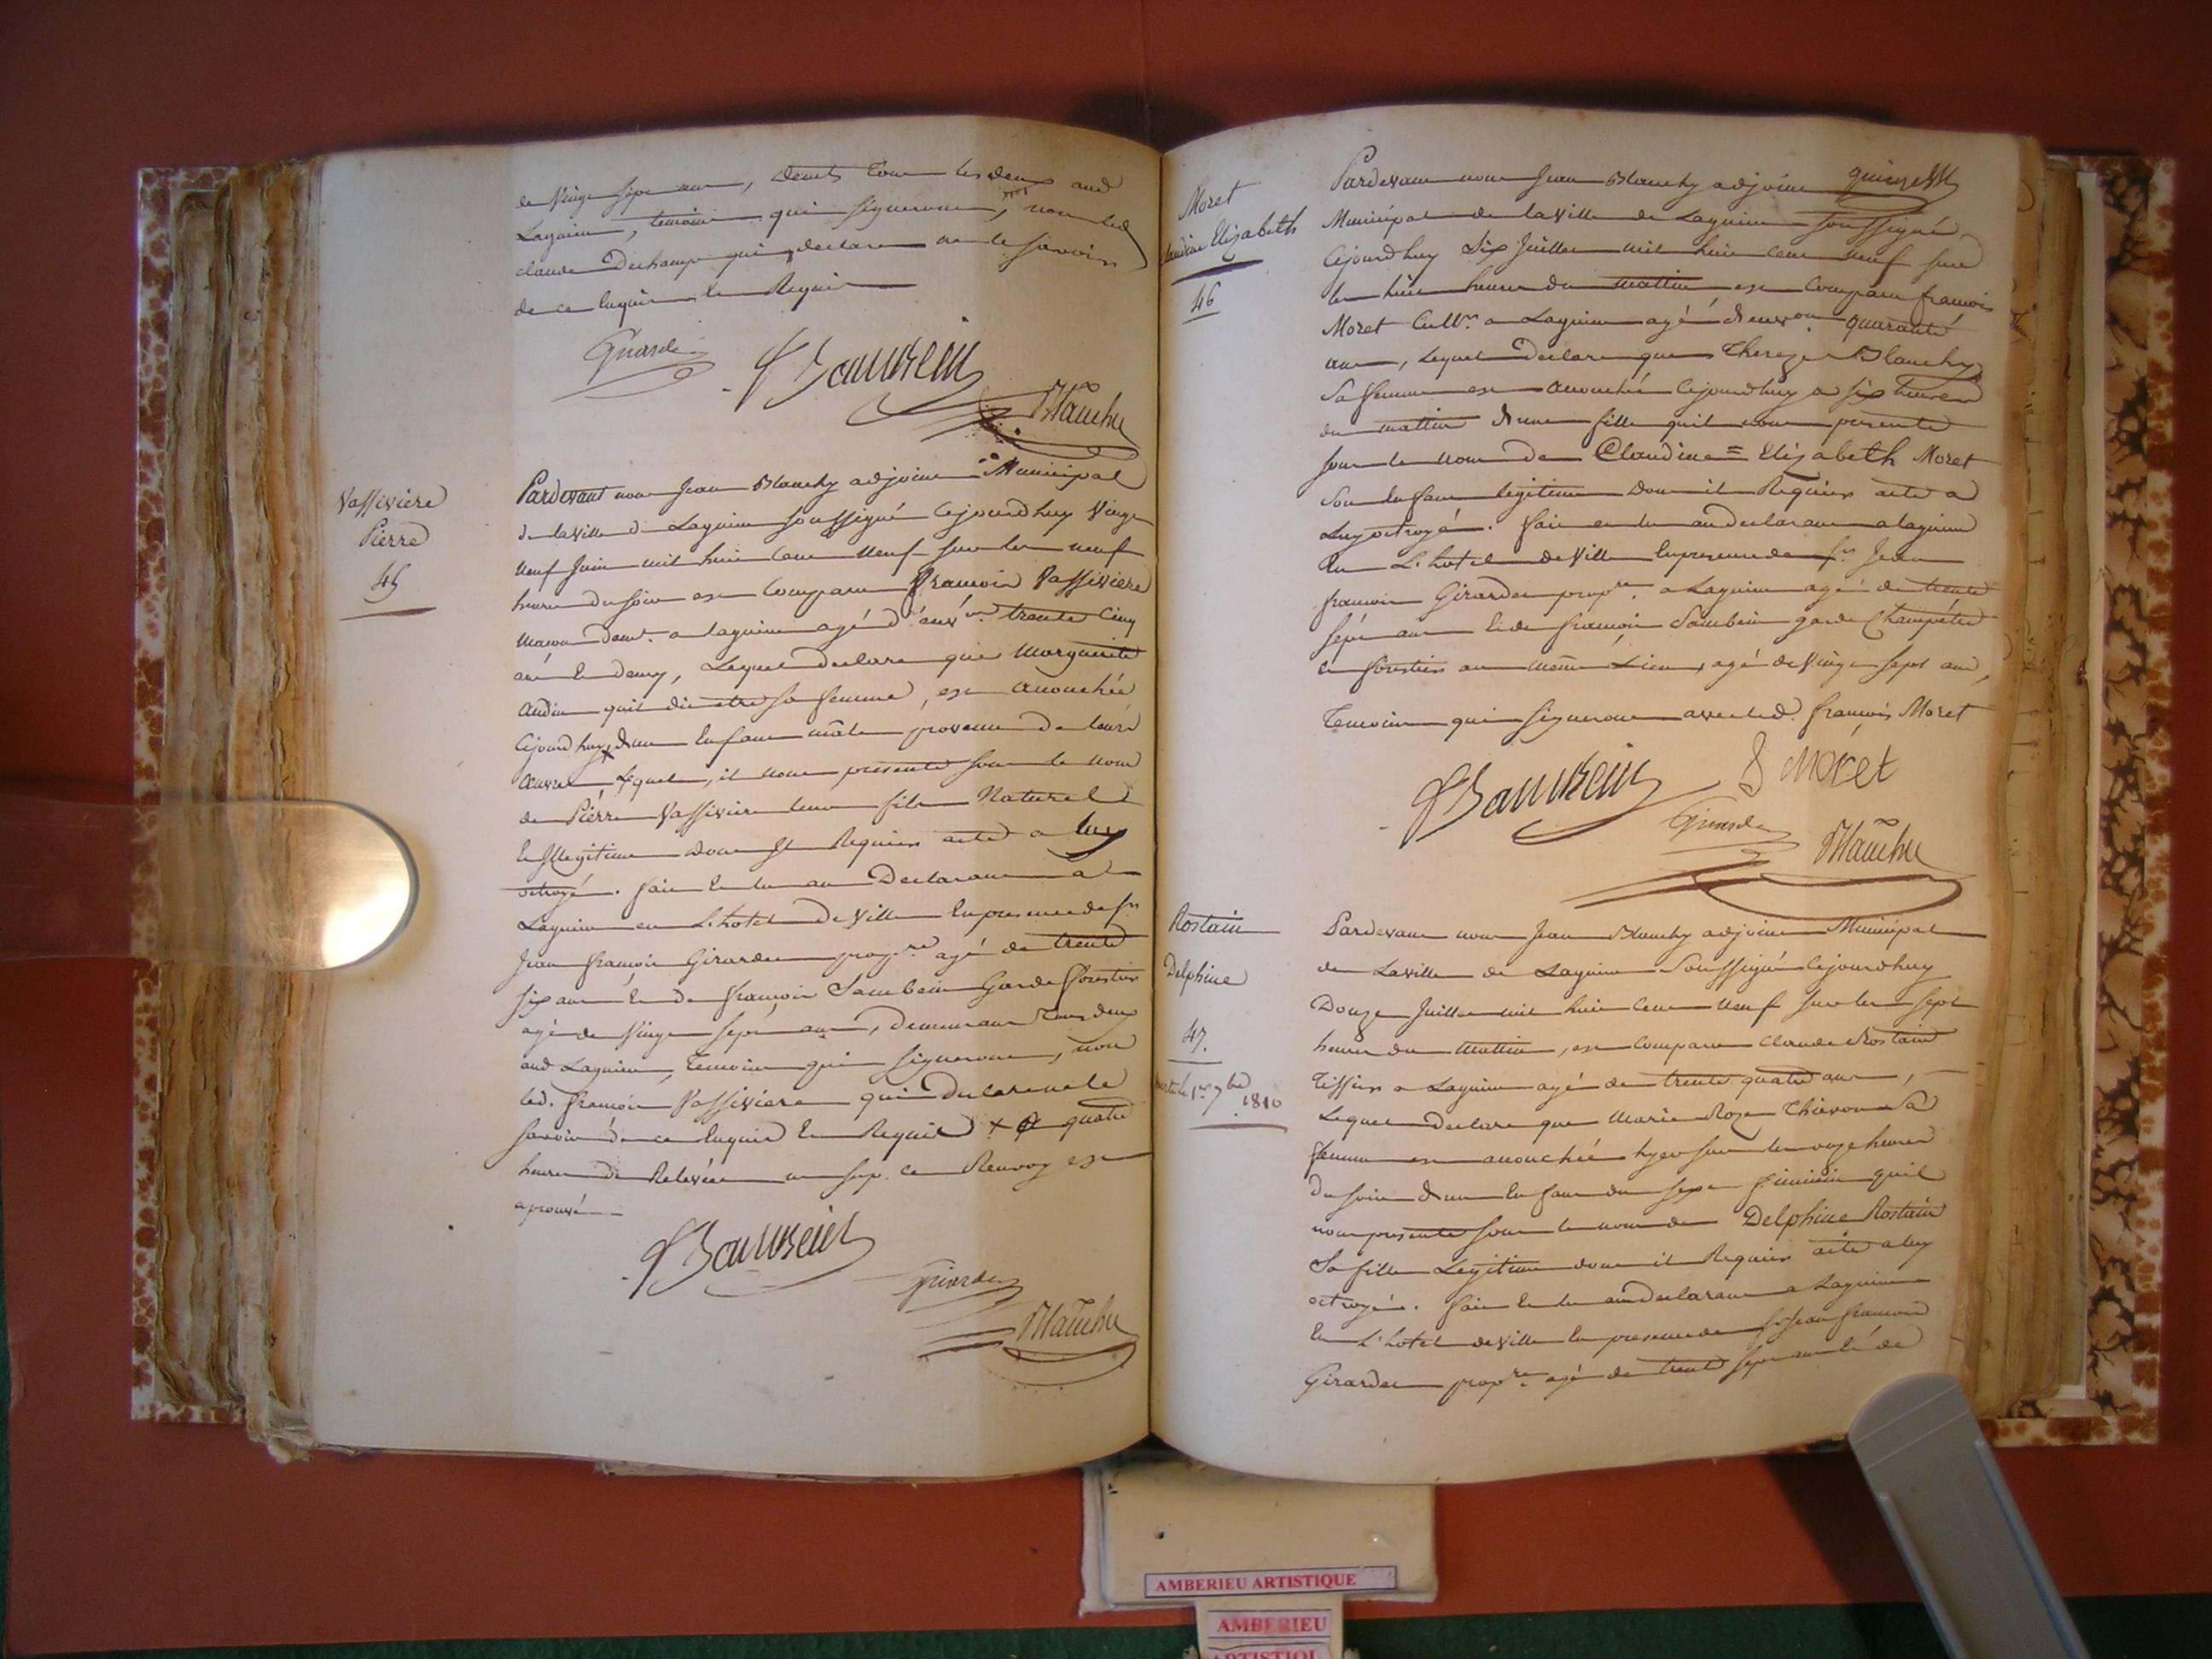 de Vingt sept ans, demts Tous les deux aud
Lagnieu, temoins qui signeront, non led
claude Dechamp qui declare ne le savoir
de ce Enquis et Requis
Girardet
f Sambein
Blanchy
Vassiviere
Pierre
45
Pardevant nous Jean Blanchy adjoint Municipal
de la ville de Lagnieu soussigné Cejourdhuy Vingt
Neuf Juin mil huit Cent Neuf sur les neuf
heures du soir est Comparu François Vassiviere
Macon demt. a Lagnieu agé d'envon trente Cinq
ans et demy, Lequel declare que Marguerite
Andin quil dit etre sa femme, est accouchée
Cejourdhuy × d'un Enfant mâle provenu de leurs
œuvres Lequel, il nous presente sous le nom
de Pierre Vassiviere leur fils Naturel
et Legitime dont Il Requier acte a luy
octroyé. fait et lu au Declarant a
Lagnieu en L'hotel de Ville En presence de sr
Jean françois Girardet propre agé de trente
six ans et de françois Sambein Garde forestier
agé de Vingt sept ans, demeurant Tous deux
aud Lagnieu, Temoins qui signeront, non
led. françois Vassiviere qui declare ne le
savoir de ce Enquis et Requis × quatre
heures de Relevée ce Renvoy est
aprouvé
f Sambein
Girardet
Blanchy
Moret
Claudine Elizabeth
46
Pardevant nous Jean Blanchy adjoint
Municipal de la Ville de Lagnieu soussigné,
Cejourdhuy Six Juillet mil huit Cent Neuf sur
les huit heures du mattin est Comparu françois
Moret Cultr. a Lagnieu agé d'environ quarante
ans, Lequel Declare que Thereze Blanchy
Sa femme est accouchée Cejourdhuy a six heures
du mattin d'une fille quil nous presente
sous le nom de Claudine = Elizabeth Moret
Son Enfant legitime dont il Requier acte a
Luy octroyé. fait et lu au declarant a lagnieu
En L'hotel de Ville En presence de sr. Jean
françois Girardet propre. a Lagnieu agé de trente
sept ans et de françois Sambein garde Champêtre
et forestier au même Lieu, agé de Vingt sept ans,
Temoins qui signeront avec led. françois Moret
f Sambein
f Moret
Girardet
Blanchy
Rostain
Delphine
47.
morte le 1er 7bre
1810
Pardevant nous Jean Blanchy adjoint Municipal
de La ville de Lagnieu Soussigné Cejourdhuy
Douze Juillet mil huit Cent Neuf sur les sept
heures du Mattin, est Comparu Claude Rostain
Tissier a Lagnieu agé de trente quatre ans,
Lequel declare que Marie Roze Thievon Sa
femme est accouchée hyer sur les onze heures
du soir d'un Enfant du sexe féminin quil
nous presente sous le nom de Delphine Rostain
Sa fille Legitime dont il Requier acte a luy
octroyé. fait et lu au declarant a Lagnieu
En L'hotel de Ville En presence de sr Jean françois
Girardet propre agé de trente sept ans et de
AMBERIEU ARTISTIQUE
AMBERIEU
ARTISTIQUE